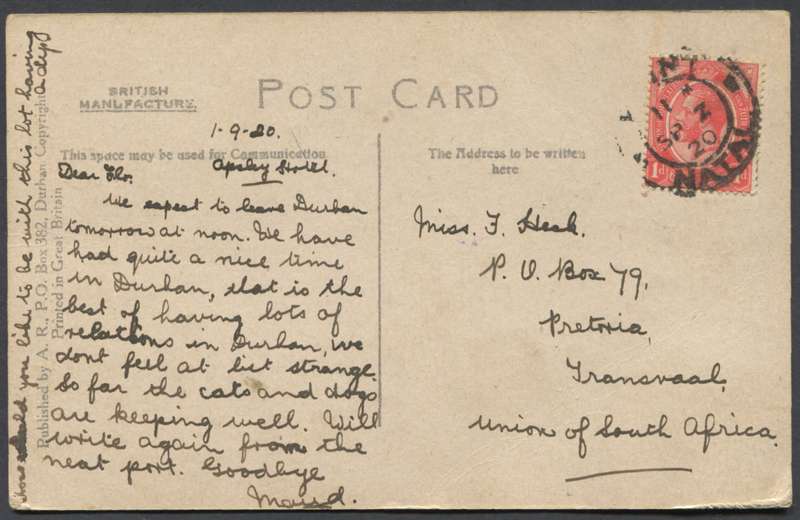 BRITISH
MANUFACTURE.
POST CARD
1-9-20.
This space may be used for Communication
The Address to be written
here
Apsley Hotel.
Dear Flo.
We expect to leave Durban
tomorrow at noon. We have
had quite a nice time
in Durban, that is the
best of having lots of
relations in Durban, we
dont feel at bit strange.
So far the cats and dogs
are keeping well. Will
write again from the
next port. Goodbye
Maud.
would you like to be with this lot having
a dip
Published by A. R., P.O. Box 382, Durban, Copyright
Printed in Great Britain
Miss. F. Heck.
P. O. Box 79,
Pretoria,
Transvaal,
Union of South Africa.
11
SP 2
20
NATAL
1d